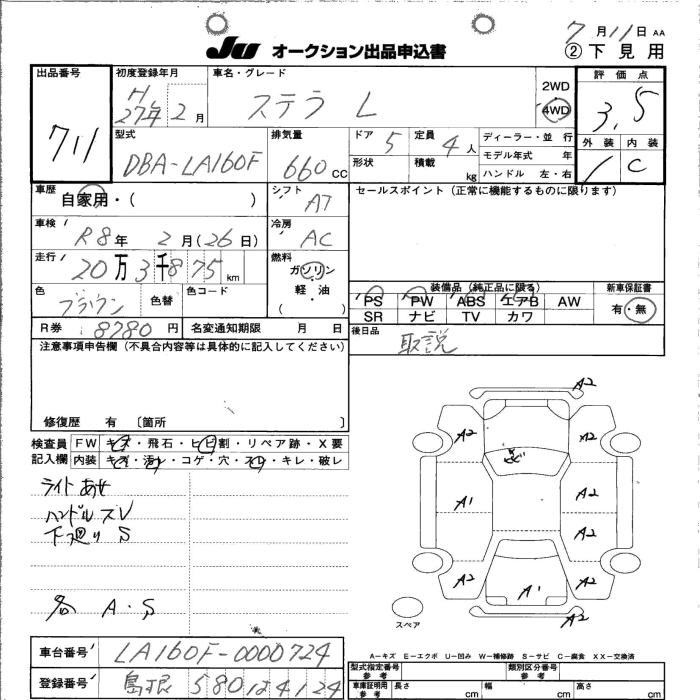 7月11日 AA
JU オークション出品申込書 ②下見用
出品番号 711
初度登録年月 H27年2月
車名・グレード ステラ L
2WD 4WD
評価点 3.5
外装 1 内装 C
型式 DBA-LA160F
排気量 660cc
ドア 5
定員 4人
形状
積載 kg
ディーラー・並行
モデル年式 年
ハンドル 左・右
車歴 自家用・( )
シフト AT
セールスポイント(正常に機能するものに限ります)
車検 R8年2月(26日)
冷房 AC
走行 20万3千875km
燃料 ガソリン 軽・油 ( )
色 ブラウン 色替 色コード
装備品(純正品に限る)
PS PW ABS エアB AW
SR ナビ TV カワ
新車保証書 有・無
R券 8780円 名変通知期限 月 日
後日品 取説
注意事項申告欄(不具合内容等は具体的に記入してください)
修復歴 有 〔箇所 〕
検査員記入欄
FW キズ・飛石・ヒビ割・リペア跡・X要
内装 キズ・汚れ・コゲ・穴・スレ・キレ・破レ
ライトあせ
ハンドルスレ
下廻り S
各 A・S
A2
A2 A2
A1 A2
A2
A2 A1 A2
A2
スペア
A-キズ E-エクボ U-凹み W-補修跡 S-サビ C-腐食 XX-交換済
車台番号 LA160F-0000724
登録番号 島根 580 い 4124
型式指定番号 参考
類別区分番号 参考
車庫証明用 参考 長さ cm 幅 cm 高さ cm